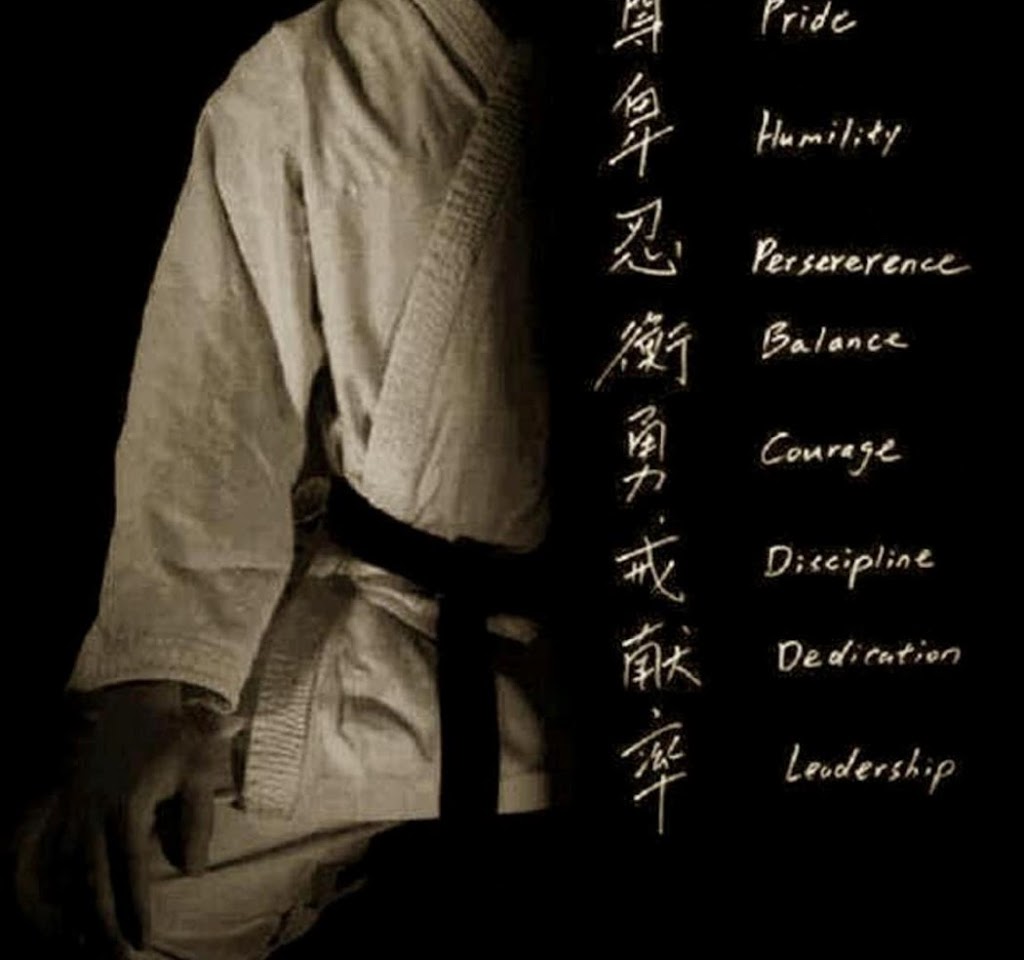 Pride
卑 Humility
忍 Perseverence
衡 Balance
勇 Courage
戒 Discipline
献 Dedication
率 Leadership